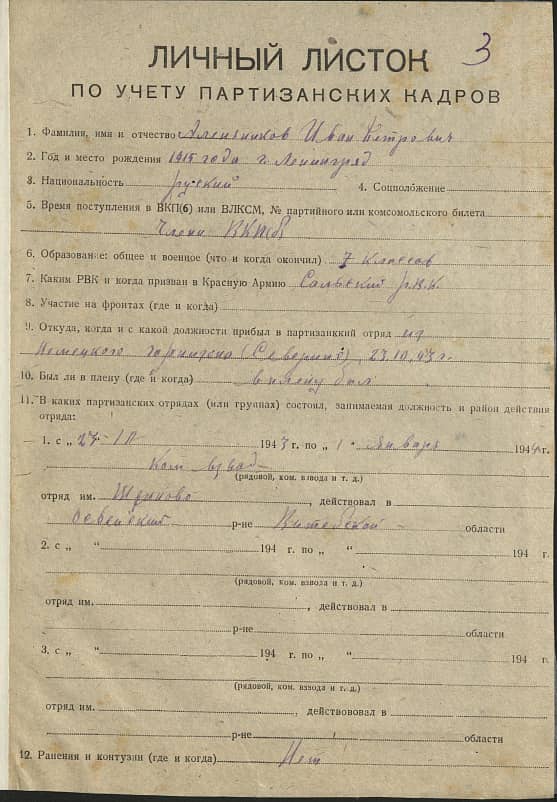 3
ЛИЧНЫЙ ЛИСТОК
ПО УЧЕТУ ПАРТИЗАНСКИХ КАДРОВ
1. Фамилия, имя и отчество Иван Петрович
2. Год и место рождения 1915 года г. Ленинград
3. Национальность русский 4. Соцположение
5. Время поступления в ВКП(б) или ВЛКСМ, № партийного или комсомольского билета
Член ВКПб
6. Образование: общее и военное (что и когда окончил) 7 классов
7. Каким РВК и когда призван в Красную Армию Сальский р.в.к.
8. Участие на фронтах (где и когда)
9. Откуда, когда и с какой должности прибыл в партизанкий отряд из
Немецкого гарнизона 23.10.43 г.
10. Был ли в плену (где и когда) в плену был
11. В каких партизанских отрядах (или группах) состоил, занимаемая должность и район действия
отряда:
1. с „ 1943 г. по „ 1 " Январь 1944 г.
Ком взвода
(рядовой, ком. взвода и т. д.)
отряд им. , действовал в
Освейский р-не Витебской области
2. с „ " 194 г. по „ " 194 г.
(рядовой, ком. взвода и т. д.)
отряд им. , действовал в
р-не области
3. с „ " 194 г. по „ " 194 г.
(рядовой, ком. взвода и т. д.)
отряд им. , действововал в
р-не области
12. Ранения и контузии (где и когда) Нет